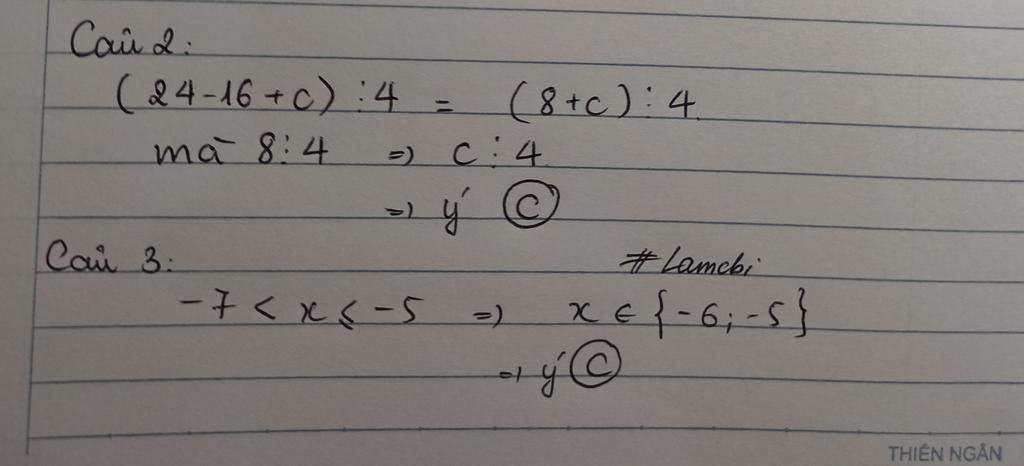 Câu 2:
(24-16+c) ⋮ 4 = (8+c) ⋮ 4
mà 8 ⋮ 4 => c ⋮ 4
=> ý Ⓒ
Câu 3:
#Lamchi
-7 < x ≤ -5 => x ∈ {-6; -5}
=> ý Ⓒ
THIÊN NGÂN